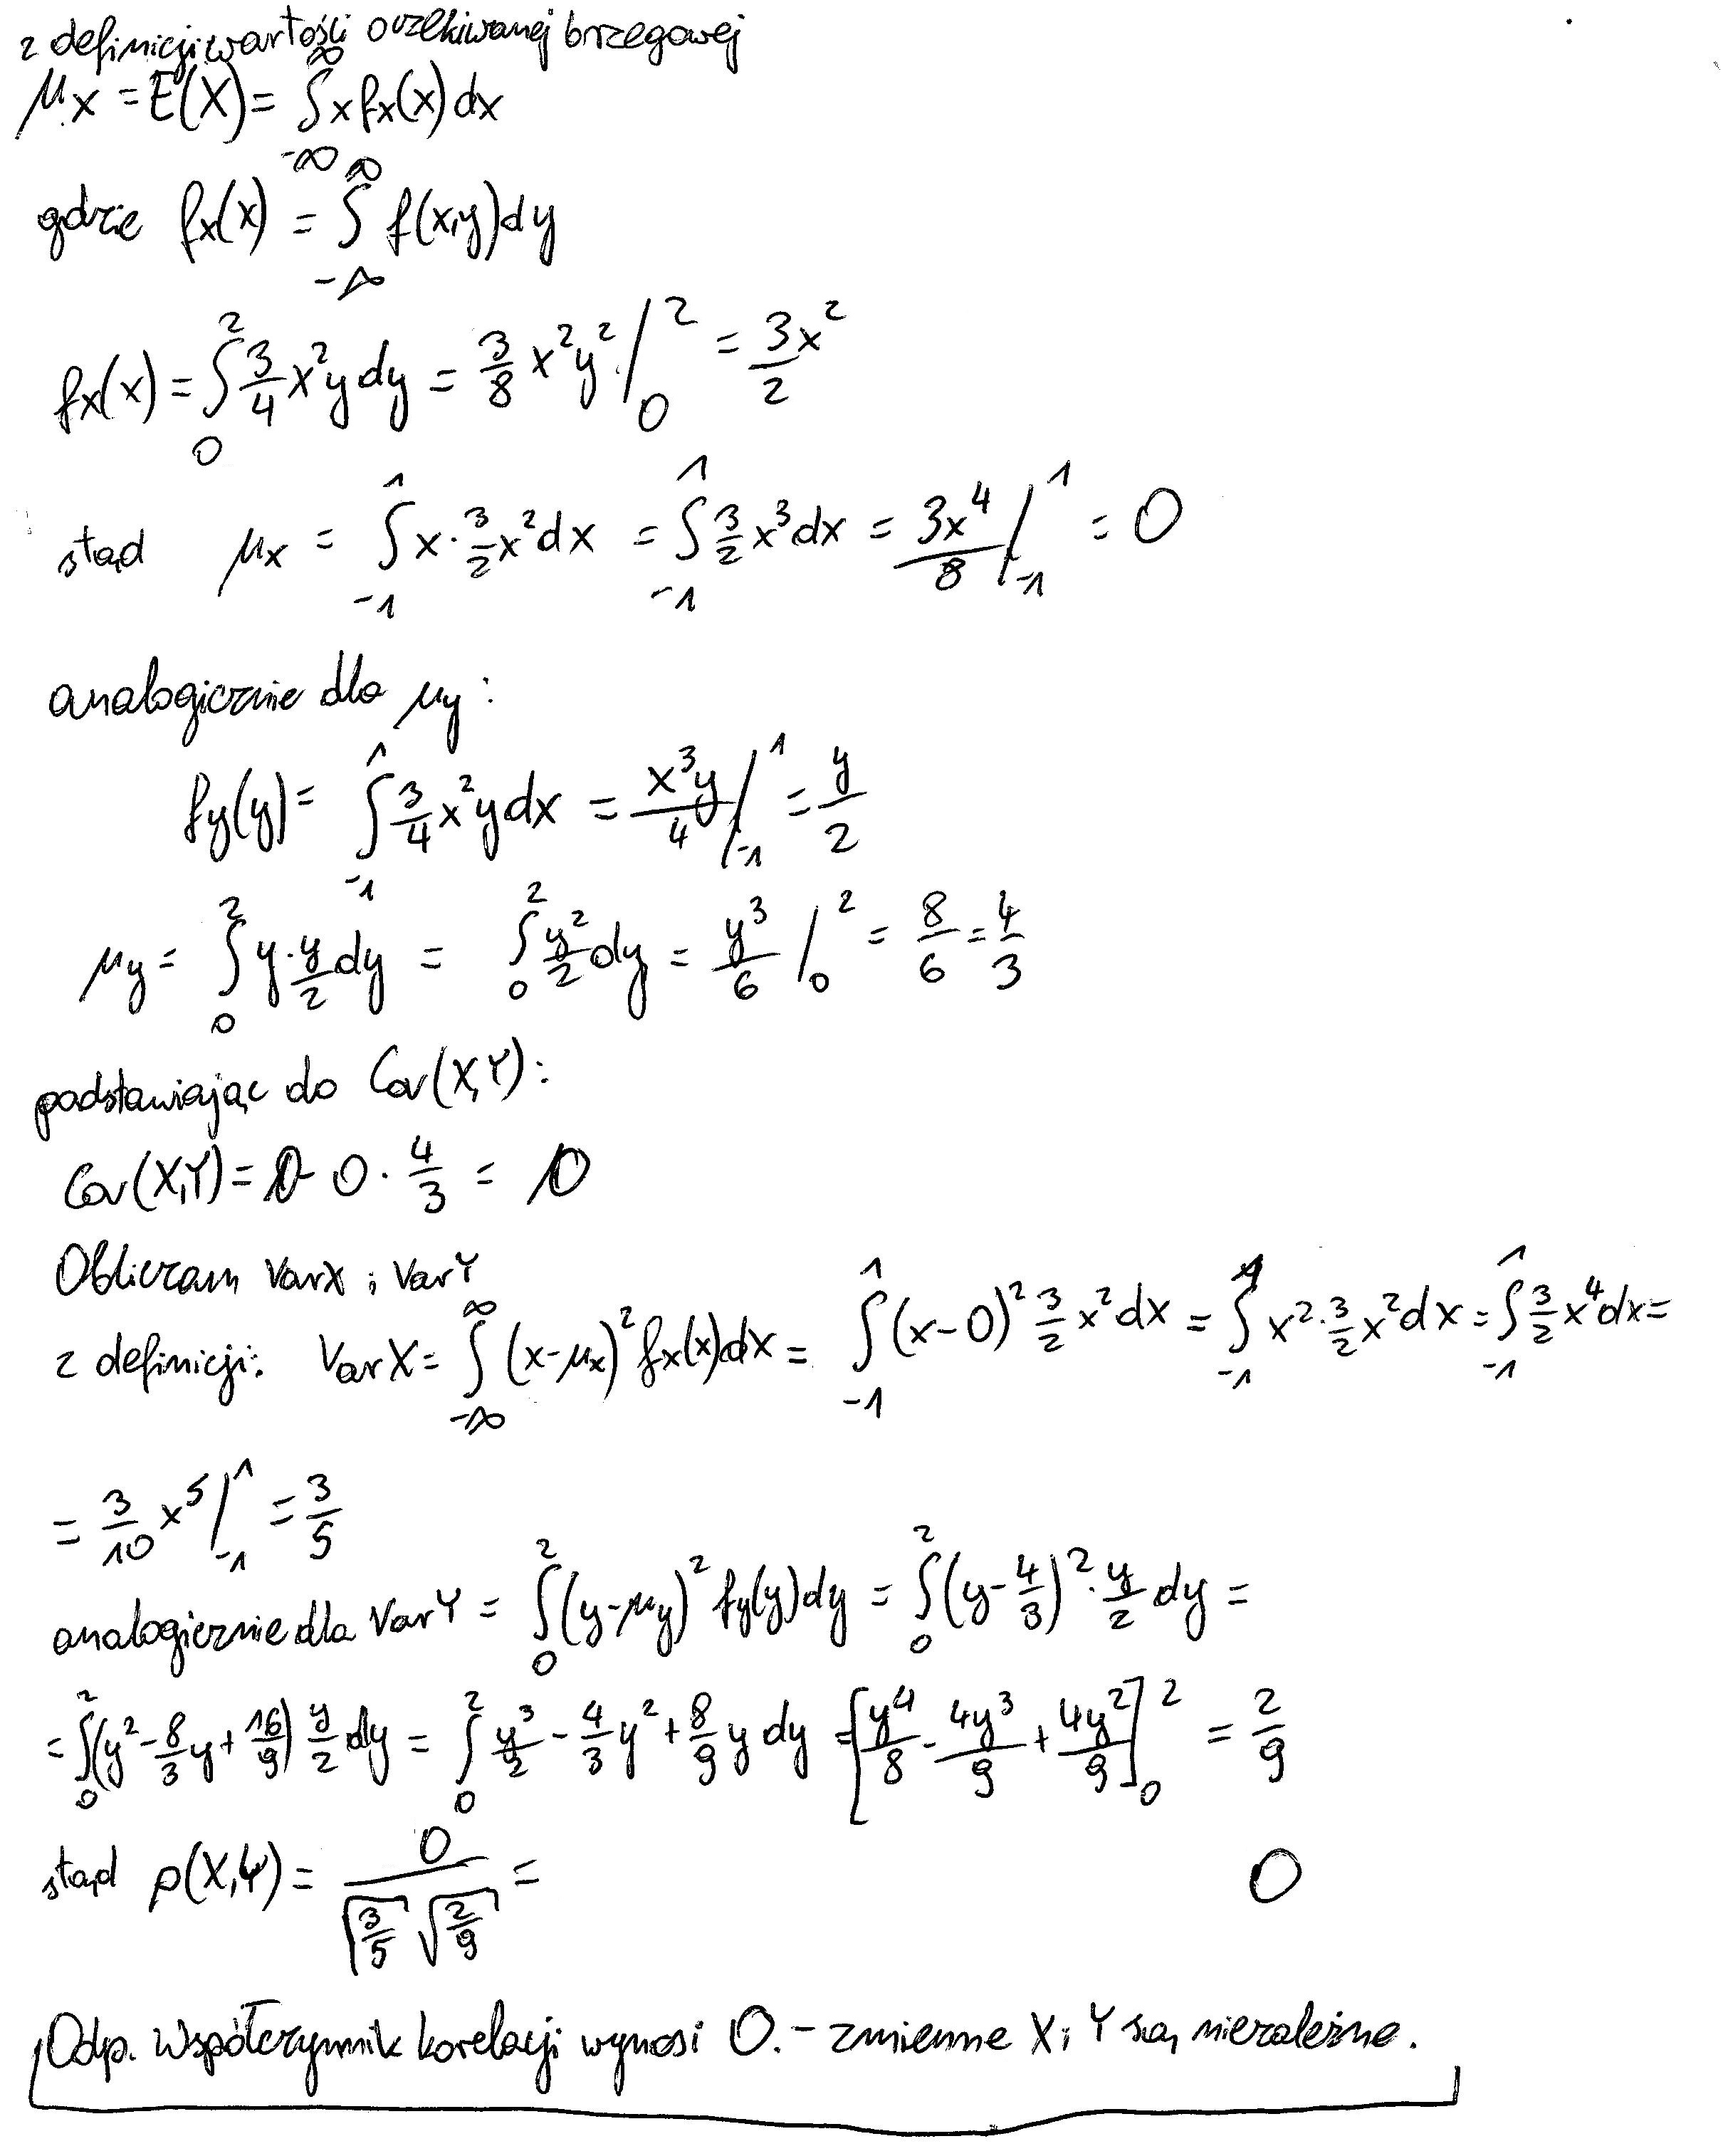 z definicji wartości oczekiwanej brzegowej
μx = E(X) = ∫_{-∞}^{∞} x fx(x) dx
gdzie fx(x) = ∫_{-∞}^{∞} f(x,y) dy
fx(x) = ∫_0^2 3/4 x²y dy = 3/8 x²y² |_0^2 = 3x²/2
stąd μx = ∫_{-1}^1 x · 3/2 x² dx = ∫_{-1}^1 3/2 x³ dx = 3x⁴/8 |_{-1}^1 = 0
analogicznie dla μy :
fy(y) = ∫_{-1}^1 3/4 x² y dx = x³y/4 |_{-1}^1 = y/2
μy = ∫_0^2 y · y/2 dy = ∫_0^2 y²/2 dy = y³/6 |_0^2 = 8/6 = 4/3
podstawiając do Cov(X,Y) :
Cov(X,Y) = 0 - 0 · 4/3 = 0
Obliczam VarX i VarY
z definicji: VarX = ∫_{-∞}^{∞} (x-μx)² fx(x) dx = ∫_{-1}^1 (x-0)² 3/2 x² dx = ∫_{-1}^1 x² · 3/2 x² dx = ∫_{-1}^1 3/2 x⁴ dx =
= 3/10 x⁵ |_{-1}^1 = 3/5
analogicznie dla VarY = ∫_0^2 (y-μy)² fy(y) dy = ∫_0^2 (y - 4/3)² · y/2 dy =
= ∫_0^2 (y² - 8/3 y + 16/9) y/2 dy = ∫_0^2 y³/2 - 4/3 y² + 8/9 y dy = [y⁴/8 - 4y³/9 + 4y²/9]_0^2 = 2/9
stąd ρ(X,Y) = 0/(√(3/5) √(2/9)) = 0
Odp. Współczynnik korelacji wynosi 0. - zmienne X i Y są niezależne.